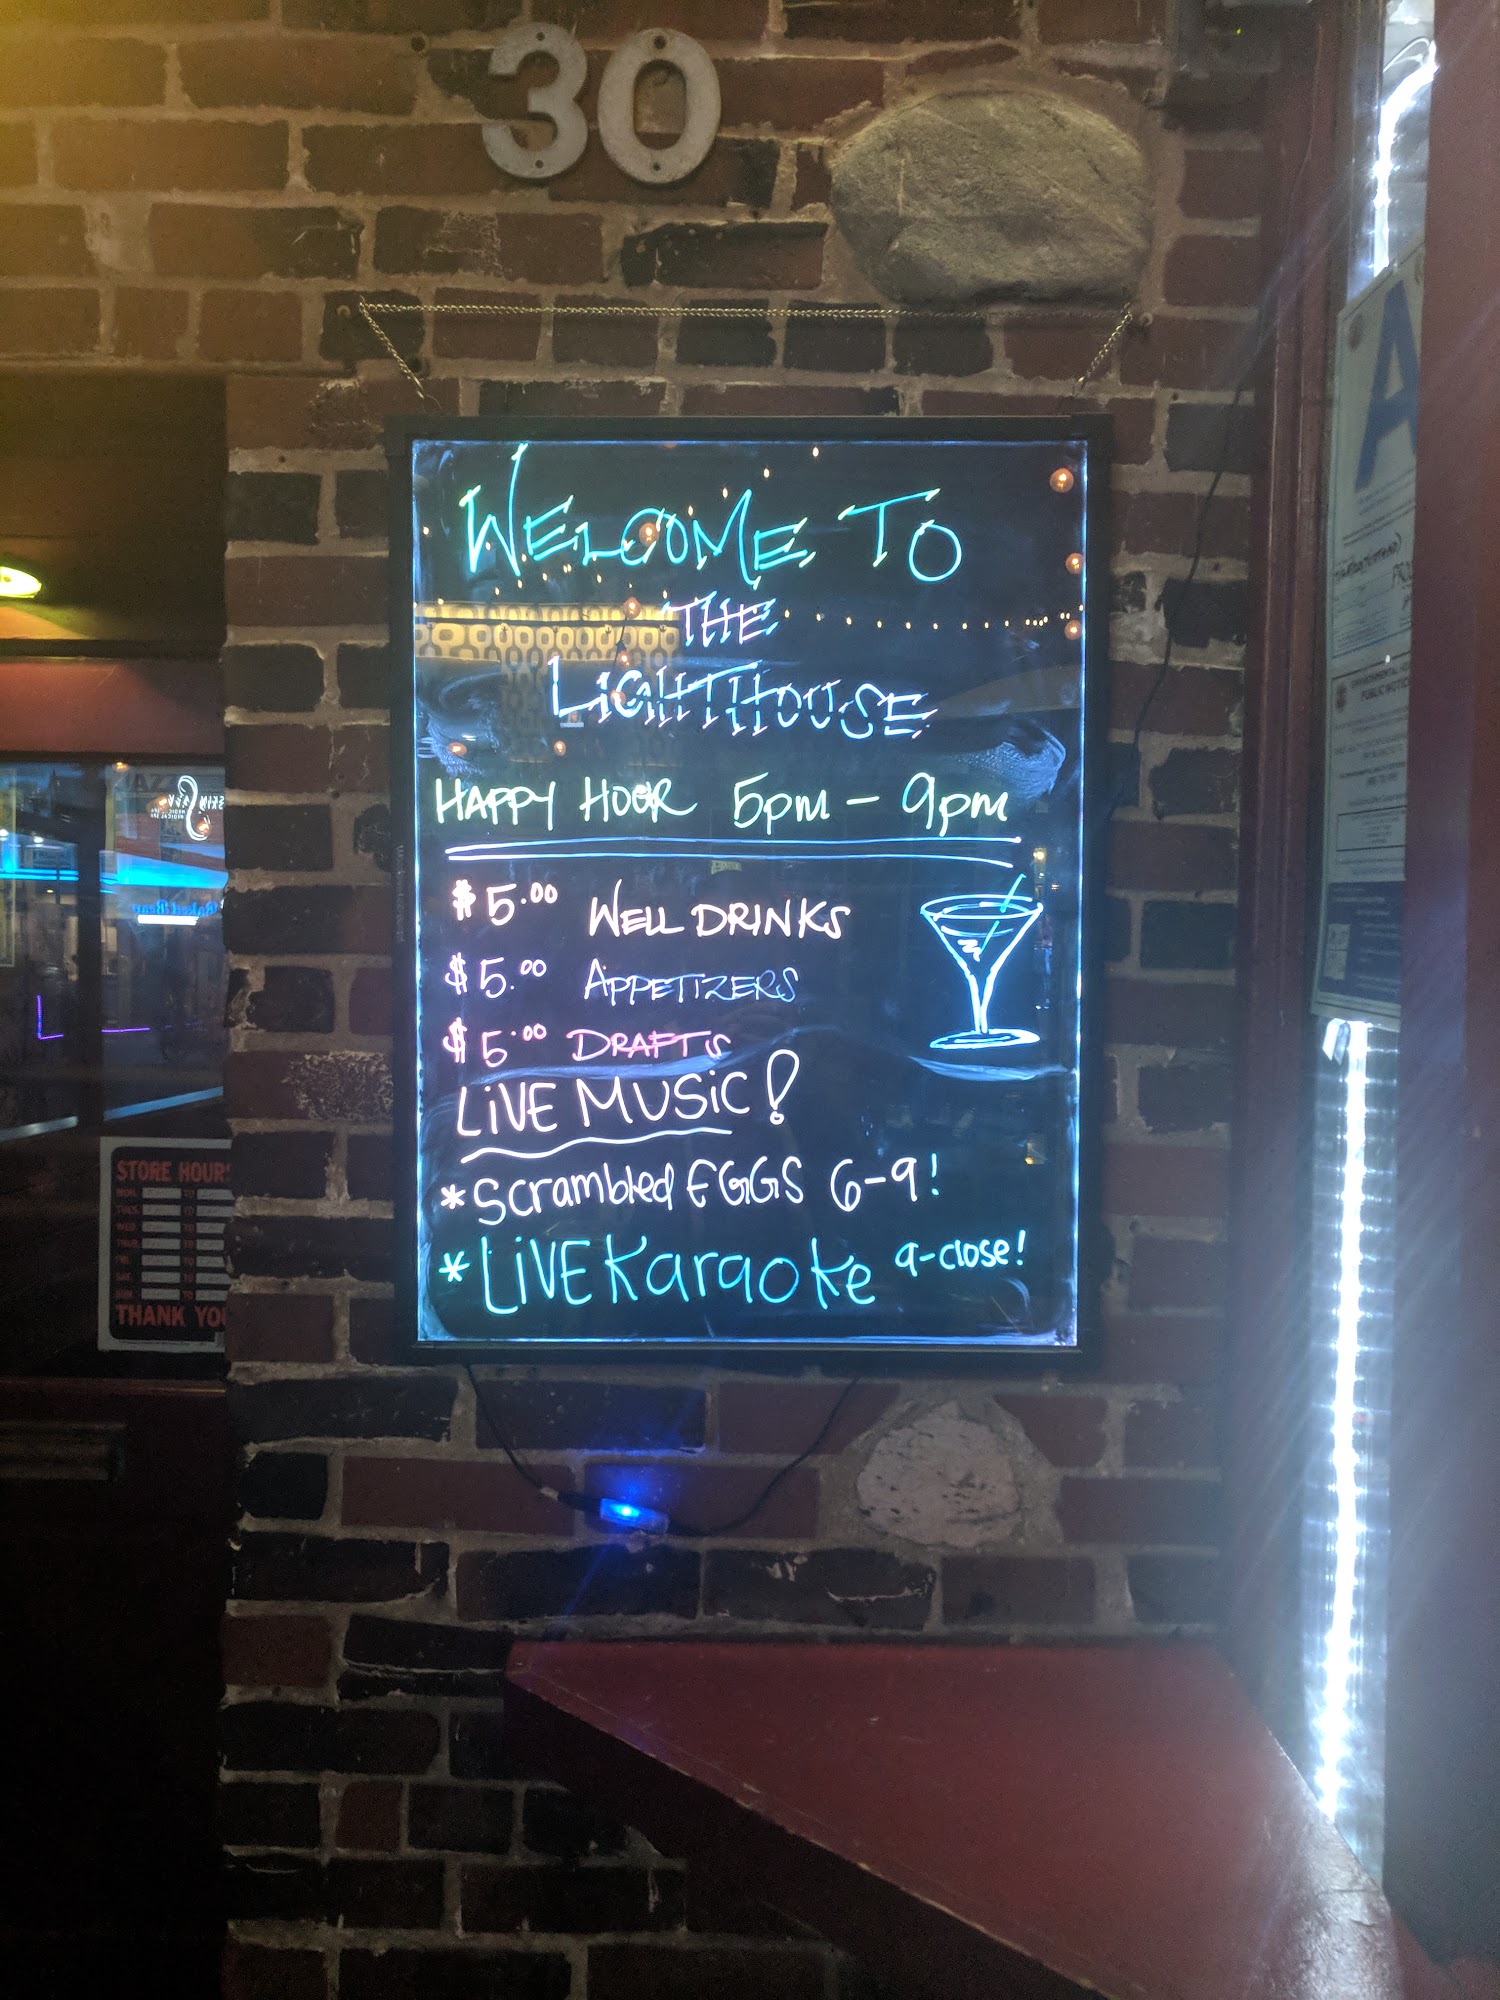 30
WELCOME TO
THE
LIGHTHOUSE
HAPPY HOUR 5pm - 9pm
$5.00 WELL DRINKS
$5.00 APPETIZERS
$5.00 DRAFTS
LiVE MUSiC!
*Scrambled EGGS 6-9!
*LiVE Karaoke 9-close!
STORE HOURS
MON. TO
TUES. TO
WED. TO
THUR. TO
FRI. TO
SAT. TO
SUN. TO
THANK YOU
A
ENVIRONMENTAL HEALTH
PUBLIC NOTICE